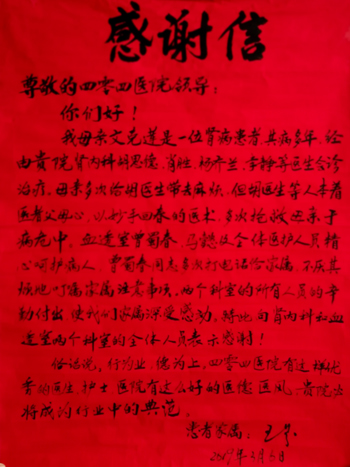 感谢信
尊敬的四零四医院领导：
你们好！
我母亲文克莲是一位肾病患者，其病多年，经
由贵院肾内科胡思德、肖胜、杨华兰、李静等医生会诊
治疗。母亲多次给胡医生带去麻烦，但胡医生等人本着
医者父母心，以妙手回春的医术，多次抢救母亲于
病危中，血透室曾蜀春、马懿及全体医护人员精
心呵护病人，曾蜀春同志多次打电话给家属，不厌其
烦地叮嘱家属注意事项。两个科室的所有人员的辛
勤付出，使我们家属深受感动。特地向肾内科和血
透室两个科室的全体人员表示感谢！
俗话说，行为业，德为上，四零四医院有这样优
秀的医生、护士，医院有这么好的医德医风，贵院必
将成为行业中的典范。
患者家属：王
2017年3月5日